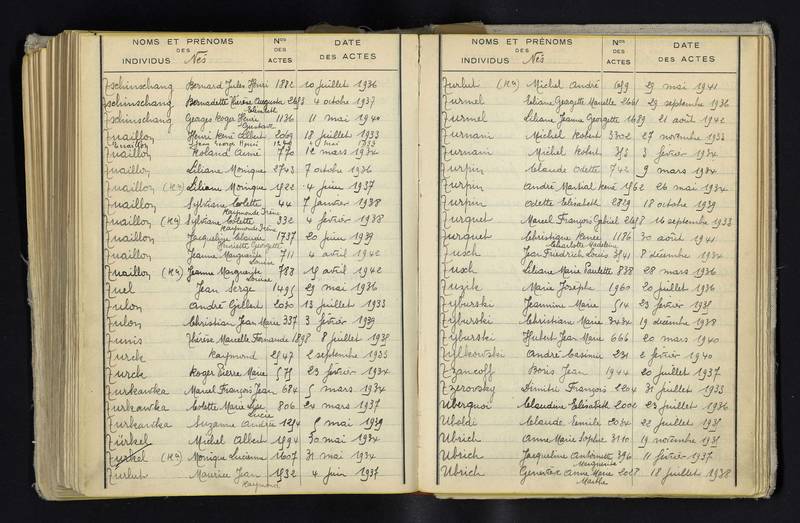 NOMS ET PRÉNOMS
DES
INDIVIDUS Nés
Nos
DES
ACTES
DATE
DES ACTES
Tschinschang Bernard Jules Henri 1872 20 juillet 1936
Tschinschang Bernadette Thérèse Augusta 2683 4 octobre 1937
Elisabeth
Tschinschang Georges Roger Henri 1136 11 mai 1940
Gustave
Tuaillon Henri René Albert 2069 18 juillet 1933
Tuaillon Henri mai 1933
Tuaillon Roland Aimé 770 12 mars 1934
Tuaillon Liliane Monique 2743 7 octobre 1936
Tuaillon Liliane Monique 1522 4 juin 1937
Tuaillon Sylviane Colette 44 7 janvier 1938
Raymonde Irène
Tuaillon Sylviane Colette 332 4 février 1938
Raymonde Irène
Tuaillon Jacqueline Claude 1737 20 juin 1939
Henriette Georgette
Tuaillon Jeanne Marguerite 711 4 avril 1942
Louise
Tuaillon Jeanne Marguerite 788 15 avril 1942
Louise
Tuel Jean Serge 1495 29 mai 1936
Tulon André Gilbert 2030 13 juillet 1933
Tulon Christian Jean Marie 337 3 février 1939
Tunis Thérèse Marcelle Fernande 1898 8 juillet 1935
Turck Raymond 2547 2 septembre 1933
Turck Roger Pierre Marie 575 23 février 1934
Turkawka Marcel François Jean 684 5 mars 1934
Turkawka Colette Marie 806 24 mars 1937
Lucie
Turkawka Suzanne Andrée 1254 mai 1939
Türkel Michel Albert 1594 30 mai 1934
Türkel Monique Lucienne 1607 31 mai 1934
Turlut Maurice Jean 1532 4 juin 1937
Raymond
NOMS ET PRÉNOMS
DES
INDIVIDUS Nés
Nos
DES
ACTES
DATE
DES ACTES
Turlut Michel André 1059 29 mai 1941
Turmel Eliane Georgette Marcelle 2661 29 septembre 1936
Turmel Liliane Jeanne Georgette 1689 21 août 1942
Turnani Michel Robert 3302 27 novembre 1933
Turnani Michel Robert 353 3 février 1934
Turpin Claude Odette 742 9 mars 1934
Turpin André Martial René 1562 26 mai 1934
Turpin Odette Elisabeth 2829 18 octobre 1939
Turquet Marcel François Gabriel 2658 16 septembre 1933
Turquet Christiane Renée 1186 30 août 1941
Charlotte Madeleine
Tusch Jean Friedrich Louis 3541 8 décembre 1934
Tusch Liliane Marie Paulette 838 28 mars 1936
Marie Josèphe 1960 20 juillet 1936
Tyburski Jeannine Marie 514 23 février 1935
Tyburski Christiane Marie 3434 19 décembre 1938
Tyburski Hubert Jean Marie 666 20 mars 1940
Tylkowski André Casimir 231 2 février 1940
Tzancoff Boris Jean 1944 20 juillet 1937
Tzerovsky Dimitri François 2204 31 juillet 1933
Uberquoi Claudine Elisabeth 2002 23 juillet 1936
Uboldi Claude Emile 2034 22 juillet 1935
Ubrich Anne Marie Sophie 3110 19 novembre 1935
Ubrich Jacqueline Antoinette 396 11 février 1937
Marguerite
Ubrich Geneviève Anne Marie 2028 18 juillet 1938
Marthe